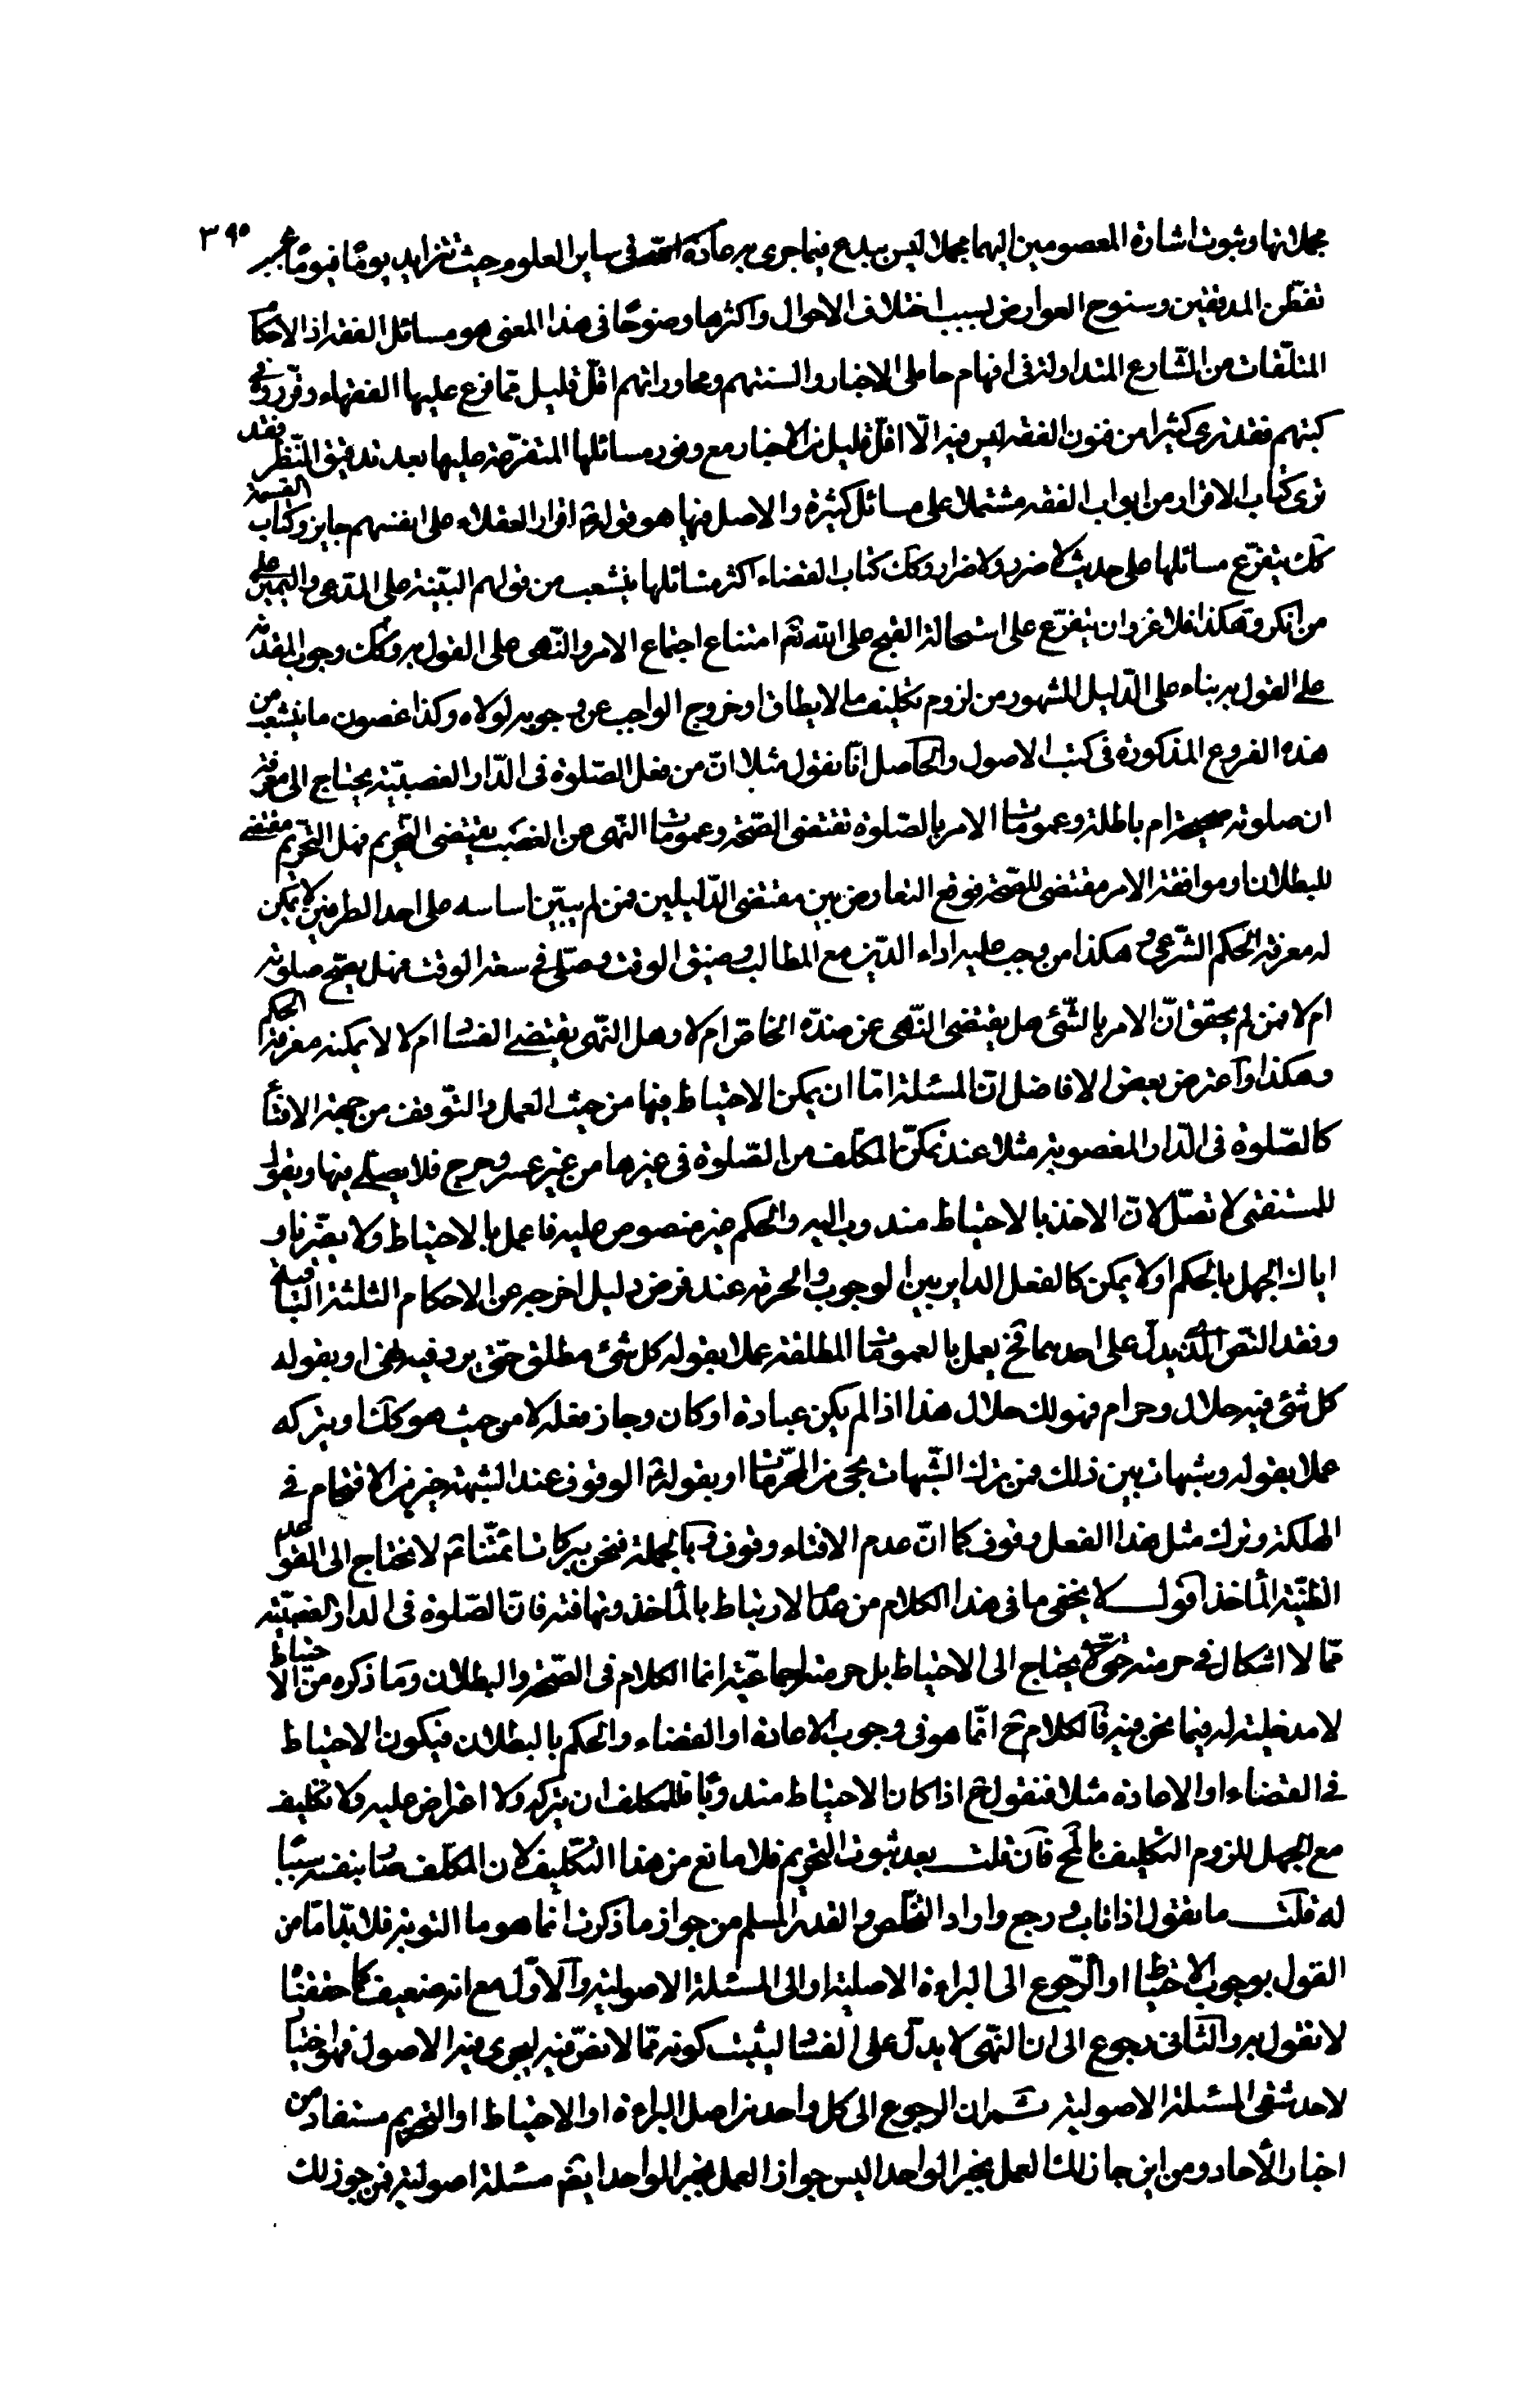 ٣٩٥
مجملاتها وثبوت اشارة المعصومين اليهما مجملا ليس ببدع فيما جرى به عادة الله في ساير العلوم حيث تتزايد يومًا فيومًا بحسب
تفطّن المدققين وسنوح العوارض بسبب اختلاف الاحوال واكثرها وضوحًا في هذا المعنى هو مسائل الفقه اذ الاحكام
المتلقّات من الشّارع المتداولة في افهام حاملى الاخبار والسنتهم ومحاوراتهم اقلّ قليل ممّا فرع عليها الفقهاء وقرّروه في
كتبهم فقد نرى كثيرا من فنون الفقه ليس فيه الّا اقلّ قليل من الاخبار مع وفور مسائلها المتفرّعة عليها بعد تدقيق النّظر فقد
ترى كتاب الاقرار من ابواب الفقه مشتملا على مسائل كثيرة والاصل فيها هو قوله ع اقرار العقلاء على انفسهم جايز وكتاب القسمة
كك يتفرّع مسائلها على حديث لا ضرر ولا ضرار وكك كتاب القضاء اكثر مسائلها ينشعب من قولهم البيّنة على المدّعى واليمين على
من انكر وهكذا فلا غرو ان يتفرّع على استحالة القبح على الله تع امتناع اجتماع الامر والنّهى على القول به وكك وجوب المقدّمة
على القول به بناء على الدّليل المشهور من لزوم تكليف ما لا يطاق او خروج الواجب عن وجوبه لولاه وكذا غصون ما ينشعب من
هذه الفروع المذكورة في كتب الاصول والحاصل انّا نقول مثلا انّ من فعل الصّلوة في الدّار الغصبيّة يحتاج الى معرفة
ان صلوته صحيحة ام باطلة وعمومات الامر بالصّلوة تقتضى الصّحة وعمومات النّهى عن الغصب يقتضى التحريم فهل التحريم مقتضى
للبطلان او موافقة الامر مقتضى للصّحة فوقع التعارض بين مقتضى الدّليلين فمن لم يبيّن اساسه على احد الطرفين لا يمكن
له معرفة الحكم الشّرعى وهكذا من وجب عليه اداء الدّين مع المطالب وضيق الوقت وصلّى في سعة الوقت فهل يصحّ صلوته
ام لا فمن لم يحقق انّ الامر بالشّئ هل يقتضى النّهى عن ضدّه الخاصّ ام لا وهل النّهى يقتضى الفساد ام لا لا يمكنه معرفة الحكم
وهكذا واعترض بعض الافاضل انّ المسئلة امّا ان يمكن الاحتياط فيها من حيث العمل والتّوقف من جهة الافتاء
كالصّلوة في الدّار المغصوبة مثلا عند تمكّن المكلّف من الصّلوة في غيرها من غير عسر وحرج فلا يصلّى فيها ويقول
للمستفتى لا تصلّ لانّ الاخذ بالاحتياط مندوب اليه والحكم غير منصوص عليه فاعمل بالاحتياط ولا يضرّنا و
اياك الجهل بالحكم او لا يمكن كالفعل الداير بين الوجوب والحرمة عند فرض دليل اخرجه عن الاحكام الثلثة الباقية
وفقد النّص الّذى يدلّ على احدهما فح يعمل بالعمومات المطلقة عملا بقوله كل شئ مطلق حتى يرد فيه نهى او بقوله
كل شئ فيه حلال وحرام فهو لك حلال هذا اذا لم يكن عبادة او كان وجاز فعله لا من حيث هو كك او يتركه
عملا بقوله وشبهات بين ذلك فمن ترك الشّبهات نجى من المحرّمات او بقوله ع الوقوف عند الشبهة خير من الاقتحام في
الهلكة وترك مثل هذا الفعل وقوف كما انّ عدم الافتاء وقوف وبالجملة فنحن ببركات ائمّتنا ع لا نحتاج الى القواعد
الظنّية المأخذ اقول لا يخفى ما في هذا الكلام من عدم الارتباط بالمأخذ وتهافته فانّ الصّلوة في الدار الغصبيّة
ممّا لا اشكال في حرمته حتّى يحتاج الى الاحتياط بل حرمته اجماعيّة انما الكلام في الصّحة والبطلان وما ذكره من الاحتياط
لا مدخلية له فيما نحن فيه فالكلام ح انّما هو في وجوب الاعادة او القضاء والحكم بالبطلان فيكون الاحتياط
في القضاء او الاعادة مثلا فنقول ح اذا كان الاحتياط مندوبًا فللمكلف ان يتركه ولا اعتراض عليه ولا تكليف
مع الجهل للزوم التكليف بالمحال فان قلت بعد ثبوت التحريم فلا مانع من هذا التّكليف لان المكلّف صار بنفسه سببًا
له قلت ما نقول اذا تاب ورجع واراد التخلّص والقدر المسلم من جواز ما ذكرت انّما هو ما التوبة فلا بدّ امّا من
القول بوجوب الاحتياط او الرّجوع الى البراءة الاصلية او الى المسئلة الاصولية والاوّل مع انه ضعيف كما حققنا
لا نقول به والثانى رجوع الى ان النّهى لا يدلّ على الفساد ليثبت كونه ممّا لا نصّ فيه ليجرى فيه الاصول فهو اختيار
لاحد شقّى المسئلة الاصولية ثم ان الرجوع الى كل واحد من اصل البراءة او الاحتياط او التحريم مستفاد من
اخبار الأحاد ومن اين جاز لك العمل بخبر الواحد اليس جواز العمل بخبر الواحد ايضا مسئلة اصولية فمن جوز لك